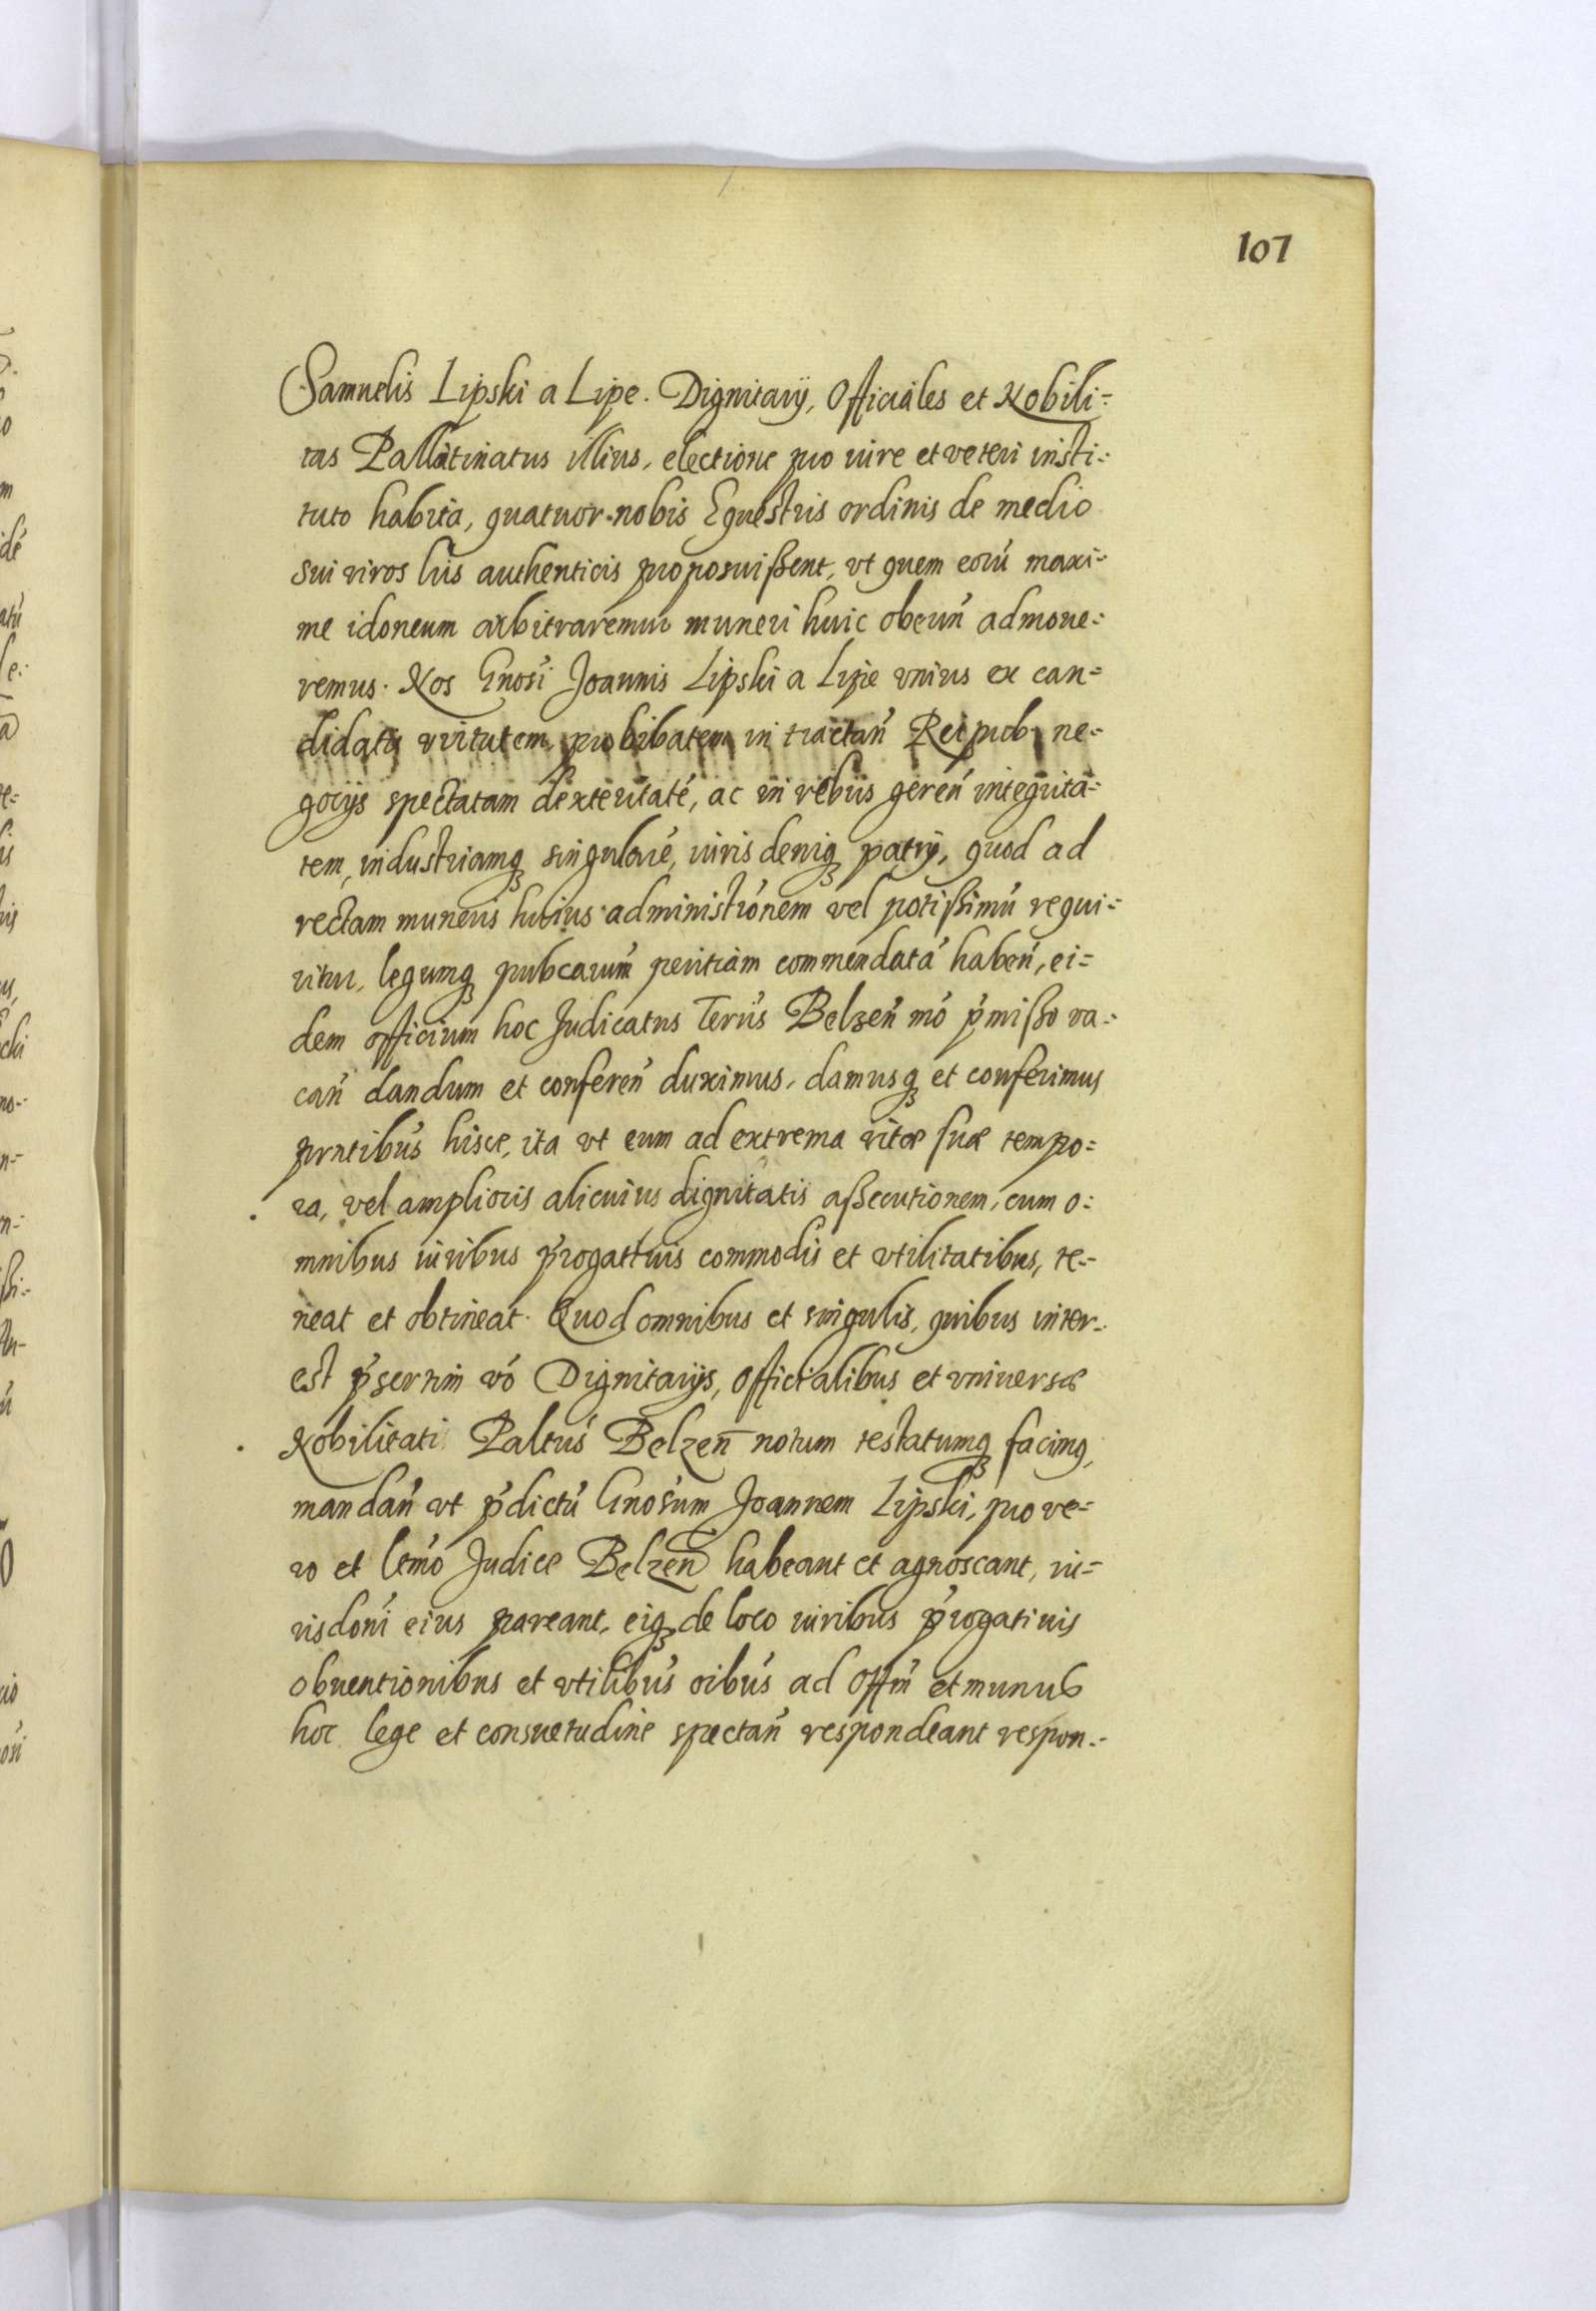 107
Samuelis Lipski a Lipe. Dignitarij, Officiales et Nobili=
tas Pallatinatus illius, electione pro iure et veteri insti=
tuto habita, quatuor nobis Equestris ordinis de medio
sui viros lris authenticis proposuißent, vt quem eorú maxi=
me idoneum arbitraremur muneri huic obeuń admoue=
remus. Nos Gnosi Joannis Lipski a Lipie vnius ex can=
didatis virtutem, probibatem in tractań Reipub: ne=
gocijs spectatam dexteritaté, ac in rebus gereń integrita=
tem, industriamq singularé, iuris deniq patrij, quod ad
rectam muneris huius administrónem vel potißimú requi=
ritur, legumq pubcarum peritiam commendatá habeń, ei=
dem officium hoc Judicatus Terrís Belzeń mó pŕmißo va=
cań dandum et confereń duximus, damusq et conferimus
prntibus hisce, ita vt eum ad extrema vitæ suæ tempo=
ra, vel amplioris alicuius dignitatis aßecutionem, cum o=
mnibus iuribus p̃rogattiuis commodis et vtilitatibus, te=
neat et obtineat. Quod omnibus et singulis, quibus inter=
est pŕsertim vó Dignitarijs, Officialibus et vniversæ
Nobilitati Paltús Belzen̄ notum testatumq facimq,
mandań vt pŕdictú Gnosum Joannem Lipski, pro ve=
ro et ltimó Judice Belzen̄ habeant et agnoscant, iu=
risdoni eius pareant, eiq de loco iuribus p̃rogatiuis
obuentionibus et vtilibús oibús ad Offm̃ et munus
hoc lege et consuetudine spectań respondeant respon=